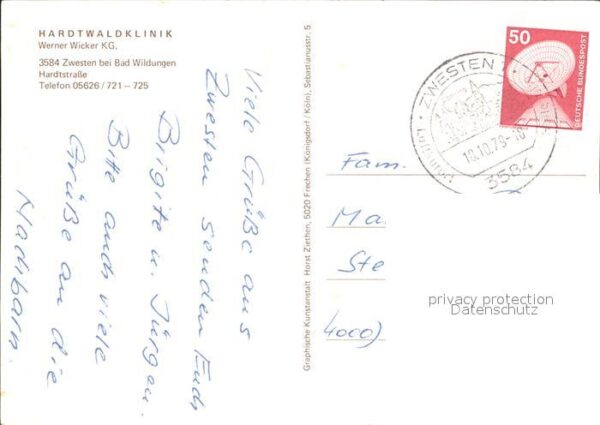 HARDTWALDKLINIK
Werner Wicker KG.
3584 Zwesten bei Bad Wildungen
Hardtstraße
Telefon 05626 / 721 – 725
Viele Grüße aus
Zwesten senden Euch
Brigitte u. Jürgen.
Bitte auch viele
Grüße an die
Nachbarn.
Graphische Kunstanstalt Horst Ziethen, 5020 Frechen (Königsdorf / Köln), Sebastianusstr. 5
50
DEUTSCHE BUNDESPOST
ZWESTEN
18
3584
Fam.
Ma
Ste
4000)
privacy protection
Datenschutz